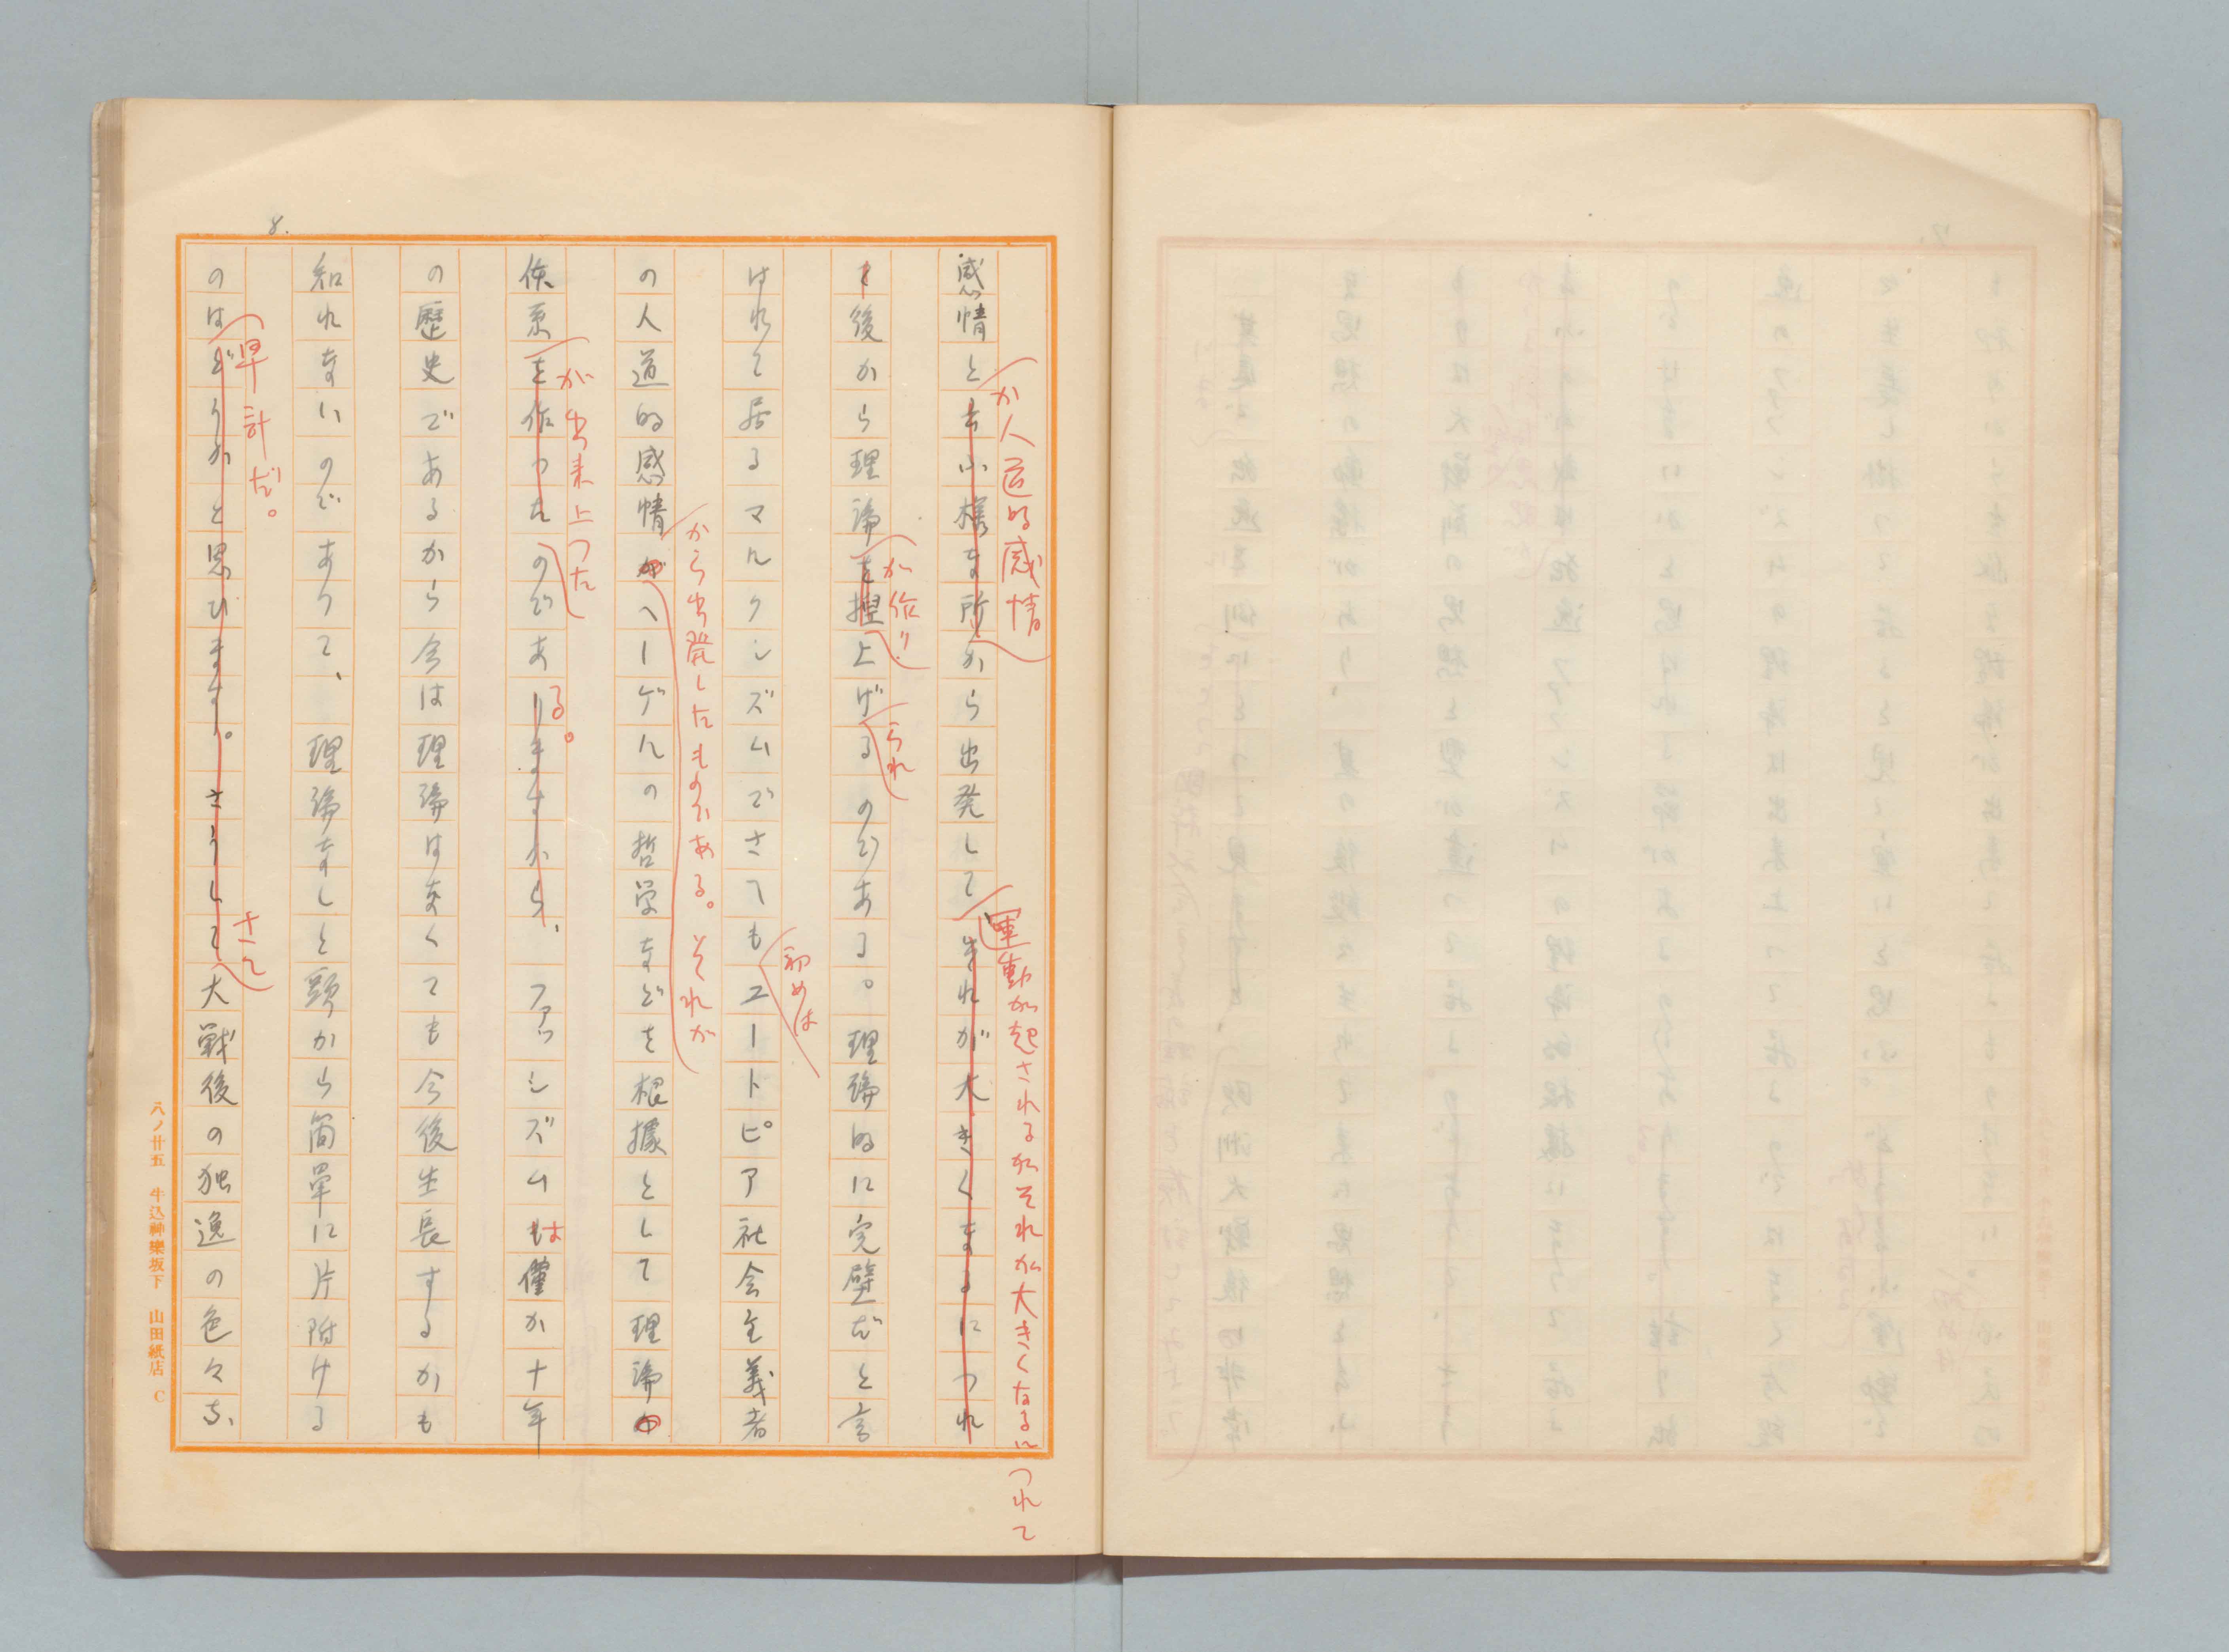 8.
感情と云ふ様な所から出発して、それが大きくなるにつれ
か人道的感情
運動が起されるがそれが大きくなるにつれて
を後から理論を捏上げるのである。理論的に完璧だと言
が作り
られ
はれて居るマルクシズムでさへもユートピア社会主義者
初めは
の人道的感情がヘーゲルの哲学などを根據として理論
から出発したものである。それが
体系を作つたのでありますから、ファッシズムも僅か十年
が出来上つた
る。
は
の歴史であるから今は理論はなくても今後生長するかも
知れないのであつて、理論なしと頭から簡単に片附ける
のはどうかと思ひます。さうして大戦後の独逸の色々な
早計だ。
さて
八ノ廿五 牛込神樂坂下 山田紙店 C